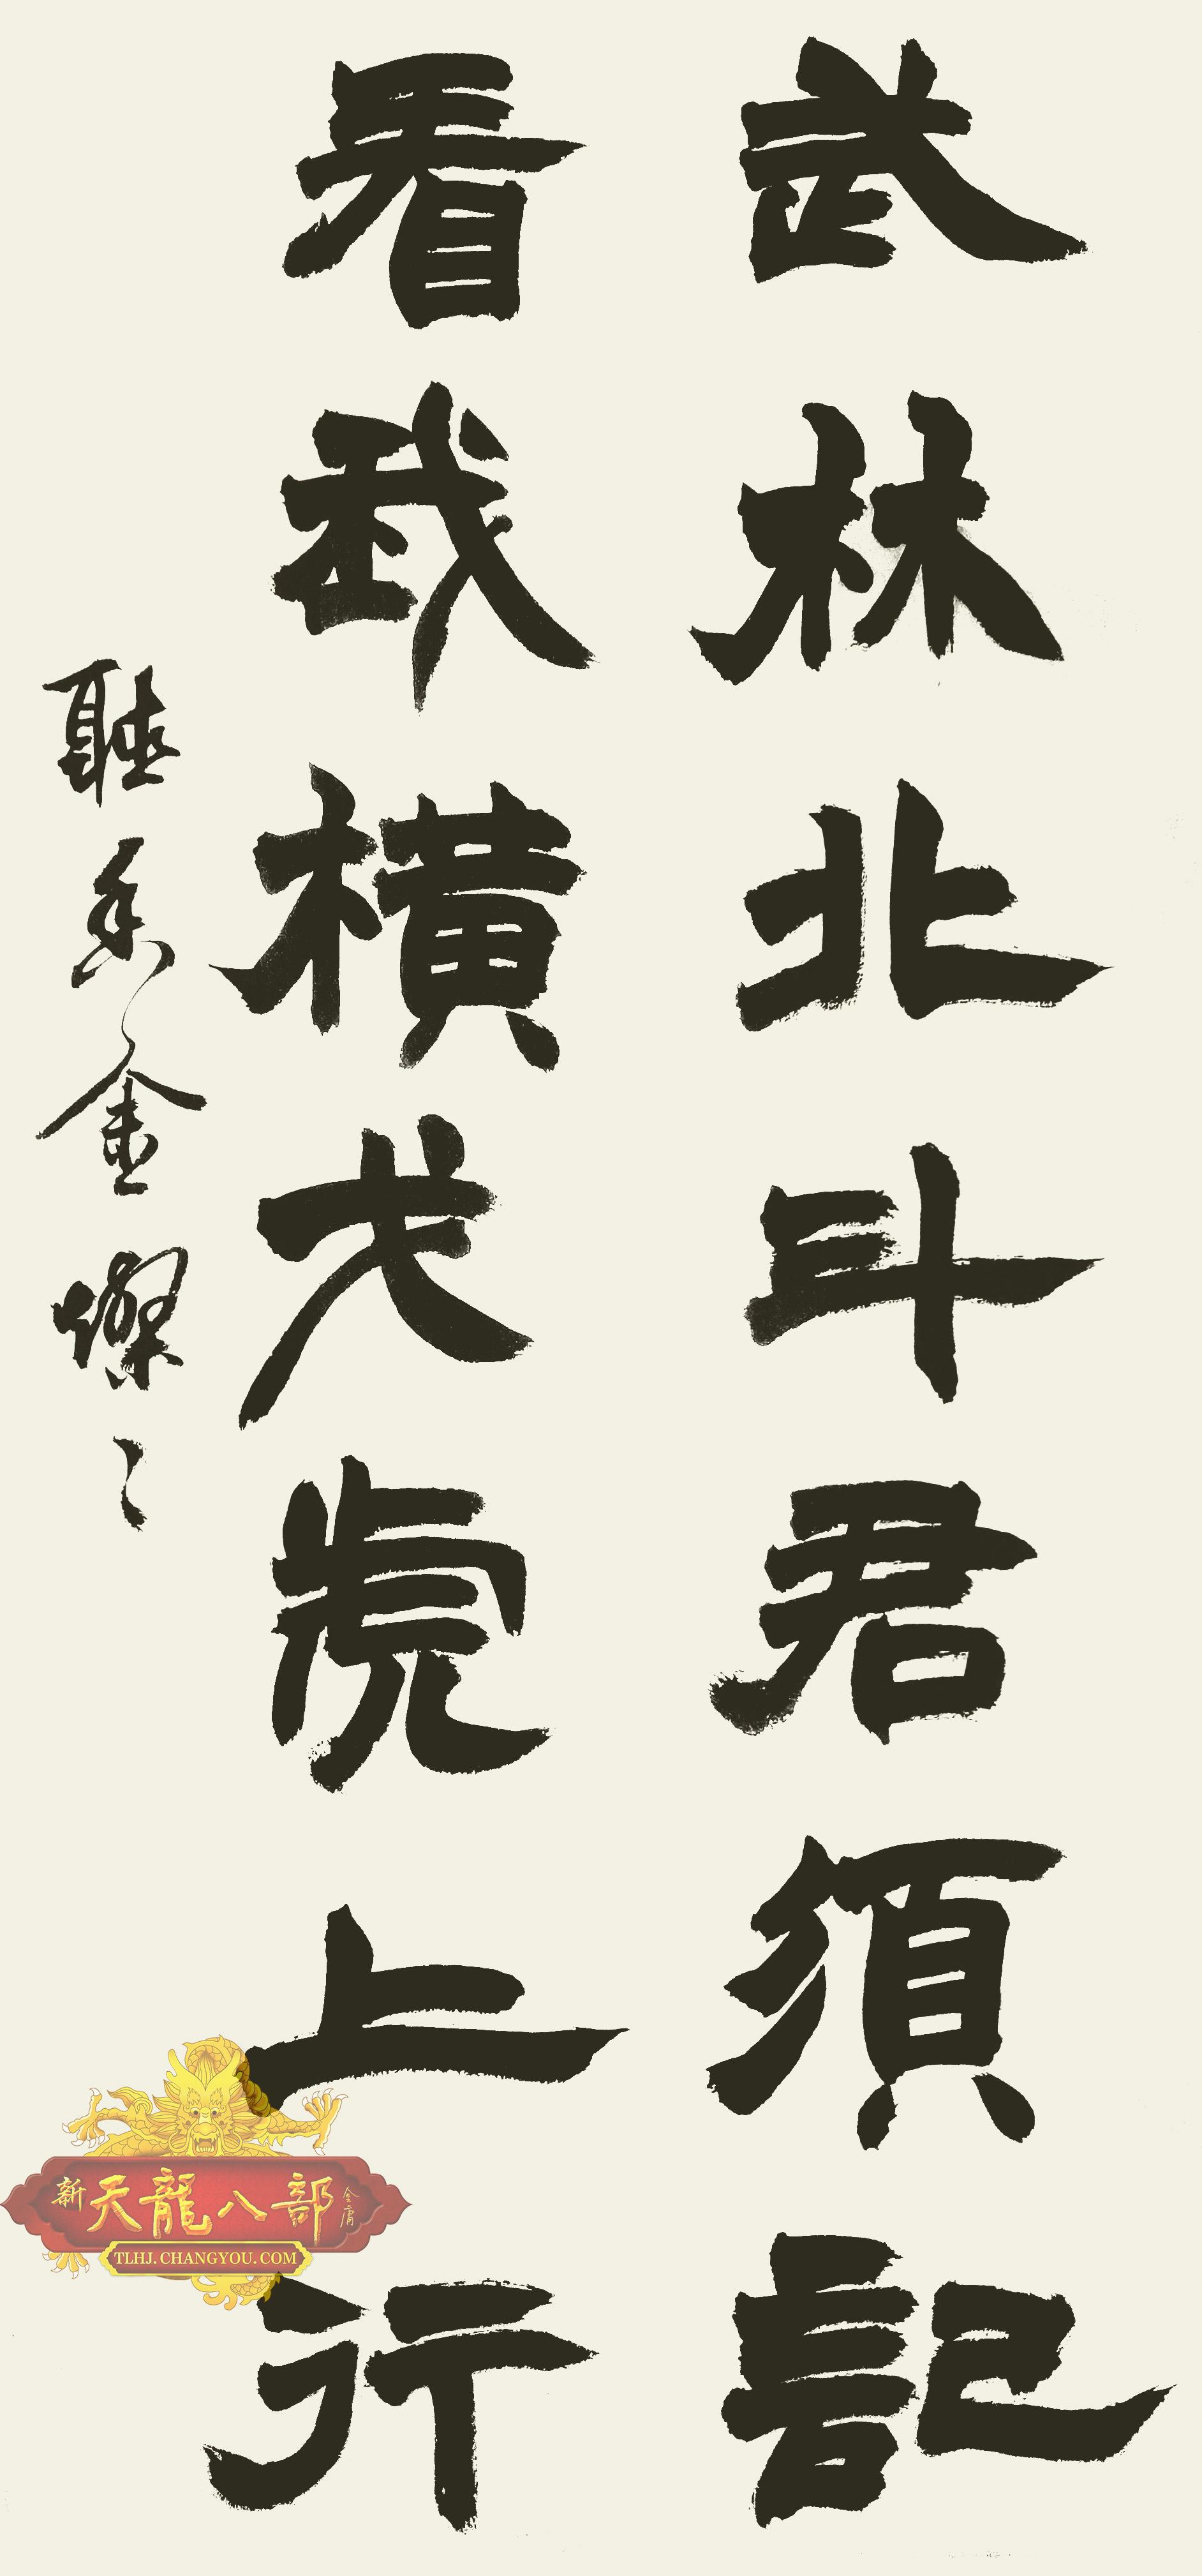 武林北斗君須記
看我橫戈虎上行
聽香金燦〻
新天龍八部金庸
TLHJ.CHANGYOU.COM